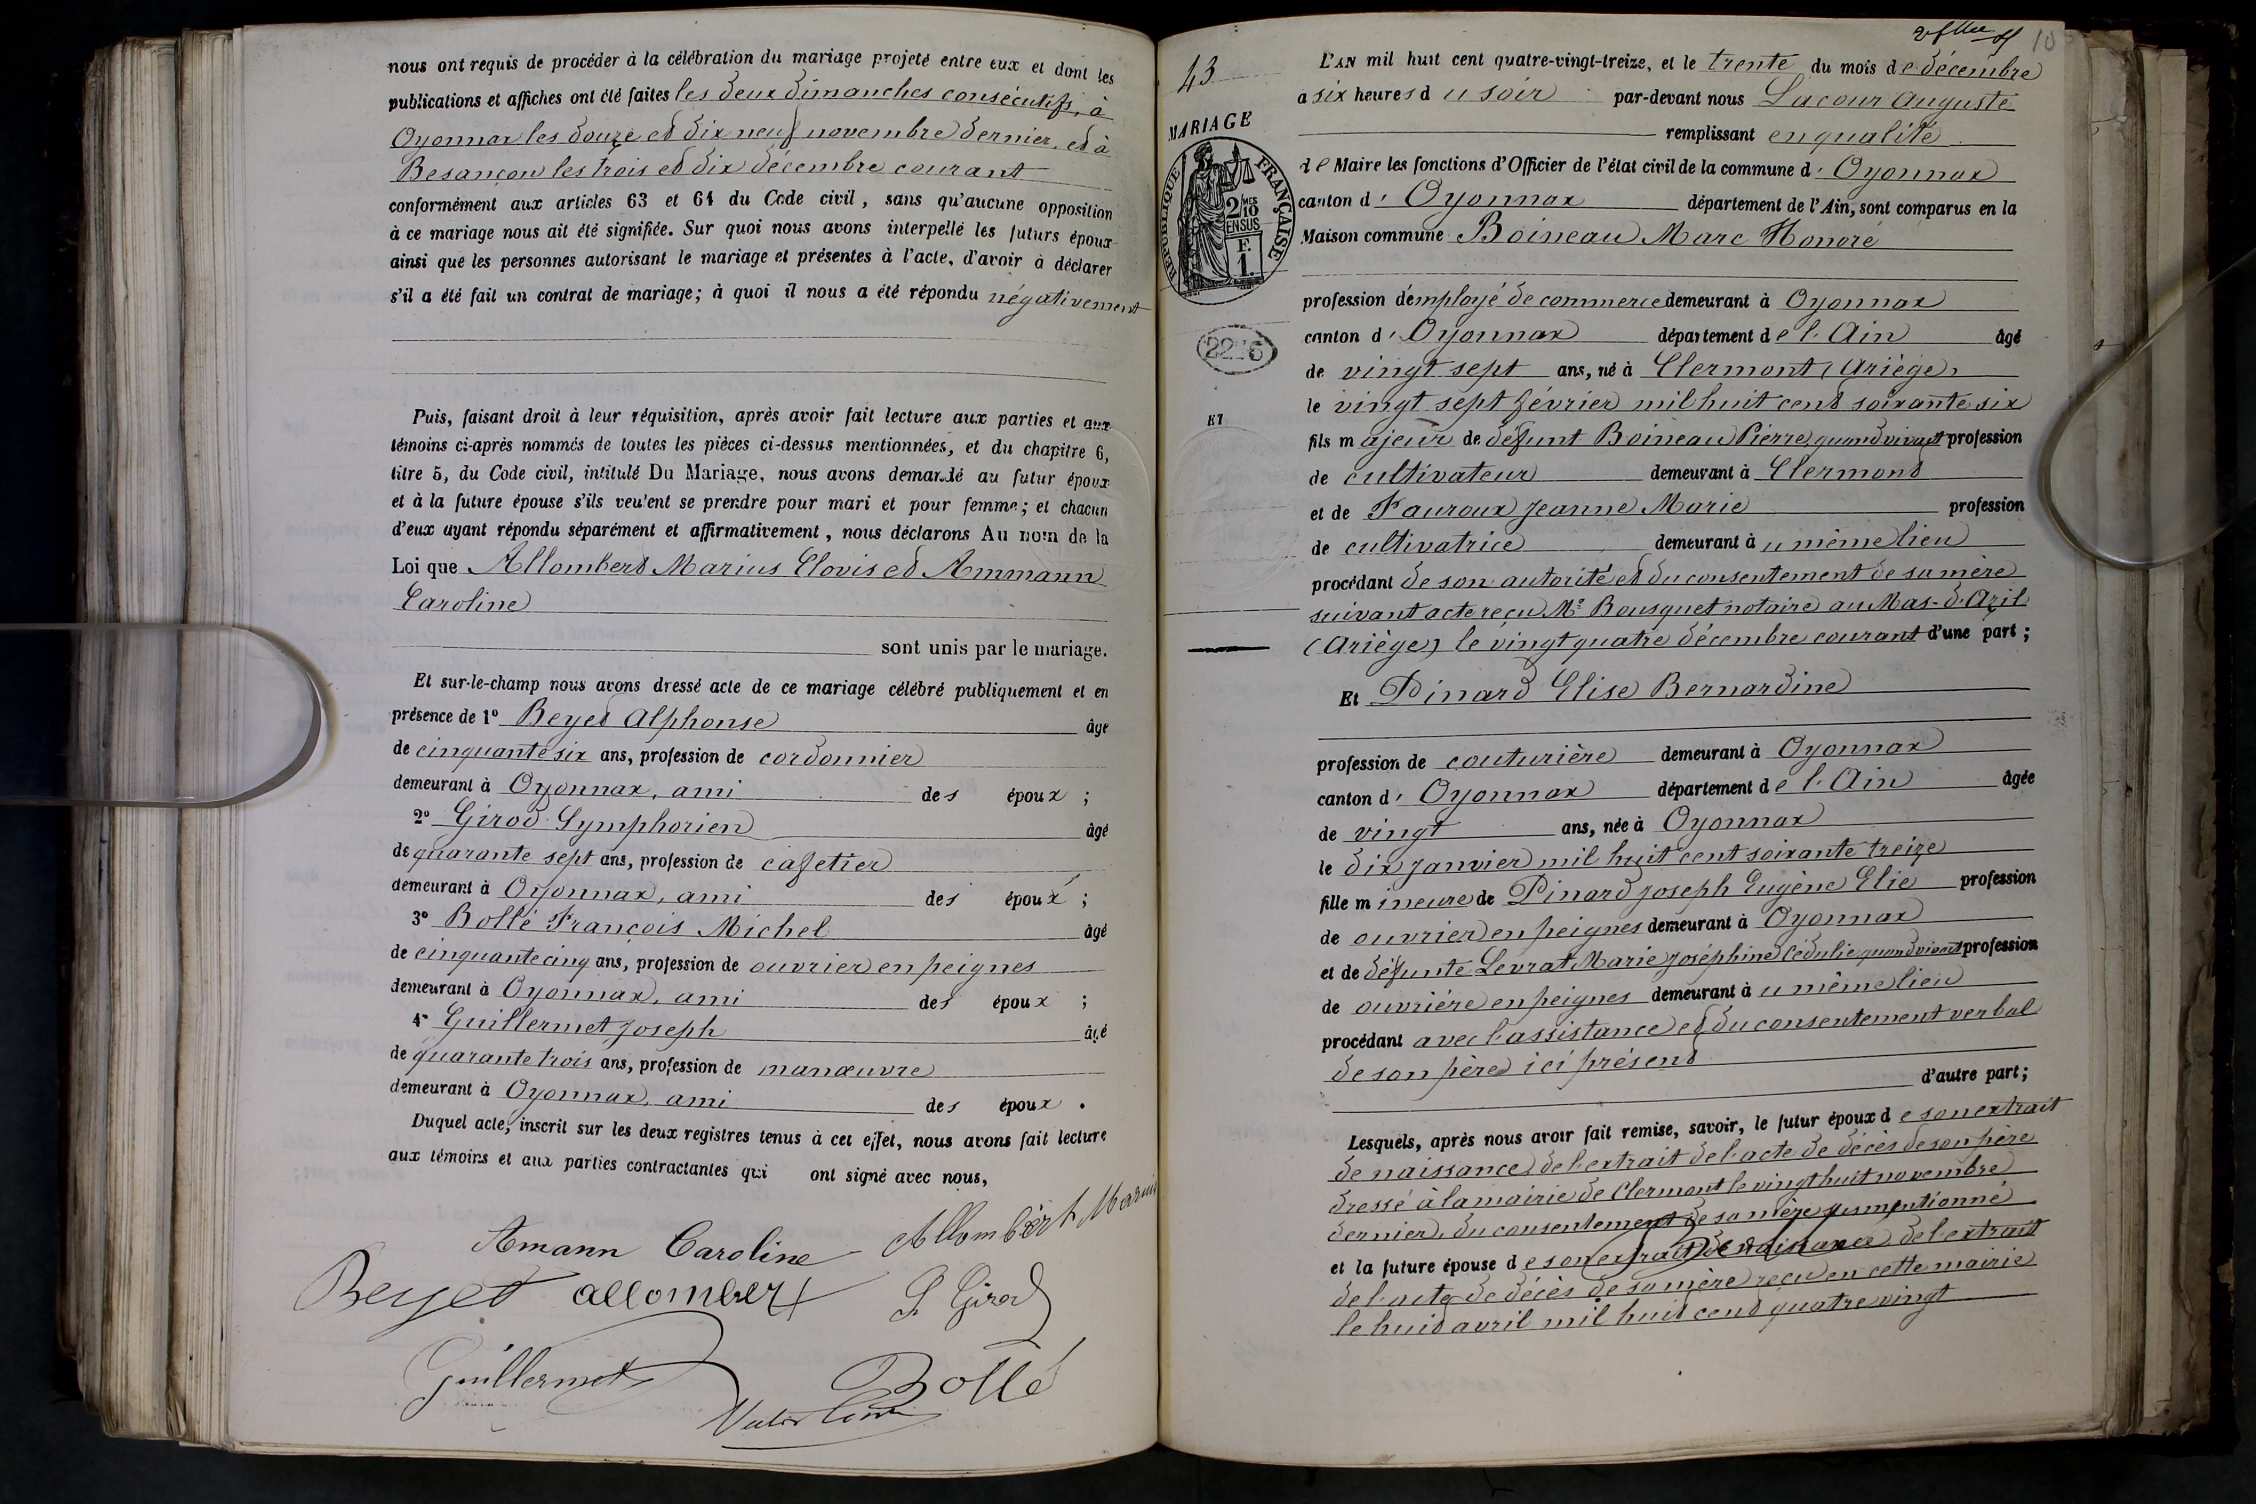 nous ont requis de procéder à la célébration du mariage projeté entre eux et dont les
publications et affiches ont été faites les deux dimanches consécutifs, à
Oyonnax les douze et dix neuf novembre dernier, et à
Besançon les trois et dix décembre courant
conformément aux articles 63 et 64 du Code civil, sans qu'aucune opposition
à ce mariage nous ait été signifiée. Sur quoi nous avons interpellé les futurs époux
ainsi que les personnes autorisant le mariage et présentes à l'acte, d'avoir à déclarer
s'il a été fait un contrat de mariage; à quoi il nous a été répondu négativement
Puis, faisant droit à leur réquisition, après avoir fait lecture aux parties et aux
témoins ci-après nommés de toutes les pièces ci-dessus mentionnées, et du chapitre 6,
titre 5, du Code civil, intitulé Du Mariage, nous avons demandé au futur époux
et à la future épouse s'ils veulent se prendre pour mari et pour femme; et chacun
d'eux ayant répondu séparément et affirmativement, nous déclarons Au nom de la
Loi que Allombert Marius Clovis et Ammann
Caroline
sont unis par le mariage.
Et sur-le-champ nous avons dressé acte de ce mariage célébré publiquement et en
présence de 1º Beyet Alphonse âgé
de cinquante six ans, profession de cordonnier
demeurant à Oyonnax, ami des époux ;
2º Girod Symphorien âgé
de quarante sept ans, profession de cafetier
demeurant à Oyonnax, ami des époux ;
3º Bollé François Michel âgé
de cinquante cinq ans, profession de ouvrier en peignes
demeurant à Oyonnax, ami des époux ;
4º Guillermet Joseph âgé
de quarante trois ans, profession de manœuvre
demeurant à Oyonnax, ami des époux .
Duquel acte, inscrit sur les deux registres tenus à cet effet, nous avons fait lecture
aux témoins et aux parties contractantes qui ont signé avec nous,
Amann Caroline Allombert Marius
Beyet allombert S Girod
Guillermet Bollé
43
MARIAGE
RÉPUBLIQUE FRANÇAISE
2/10 MES
EN SUS
F.
1.
2276
K7
10
L'AN mil huit cent quatre-vingt-treize, et le trente du mois de décembre
a six heures du soir par-devant nous Lacour Auguste
remplissant en qualité
de Maire les fonctions d'Officier de l'état civil de la commune d' Oyonnax
canton d' Oyonnax département de l'Ain, sont comparus en la
Maison commune Boineau Marc Honoré
profession d'employé de commerce demeurant à Oyonnax
canton d' Oyonnax département de l'Ain âgé
de vingt sept ans, né à Clermont (Ariège)
le vingt sept février mil huit cent soixante six
fils majeur de défunt Boineau Pierre quand vivait profession
de cultivateur demeurant à Clermont
et de Fauroux Jeanne Marie profession
de cultivatrice demeurant à u même lieu
procédant de son autorité et du consentement de sa mère
suivant acte reçu Me Bousquet notaire au Mas-d'Azil
(Ariège) le vingt quatre décembre courant d'une part ;
Et Pinard Elise Bernardine
profession de couturière demeurant à Oyonnax
canton d' Oyonnax département de l'Ain âgée
de vingt ans, née à Oyonnax
le dix janvier mil huit cent soixante treize
fille mineure de Pinard Joseph Eugène Elie profession
de ouvrier en peignes demeurant à Oyonnax
et de défunte Levrat Marie Joséphine Cédulie quand vivait profession
de ouvrière en peignes demeurant à u même lieu
procédant avec l'assistance et du consentement verbal
de son père ici présent
d'autre part ;
Lesquels, après nous avoir fait remise, savoir, le futur époux de son extrait
de naissance, de l'extrait de l'acte de décès de son père
dressé à la mairie de Clermont le vingt huit novembre
dernier, du consentement de sa mère susmentionné
et la future épouse de son extrait de naissance, de l'extrait
de l'acte de décès de sa mère reçu en cette mairie
le huit avril mil huit cent quatre vingt